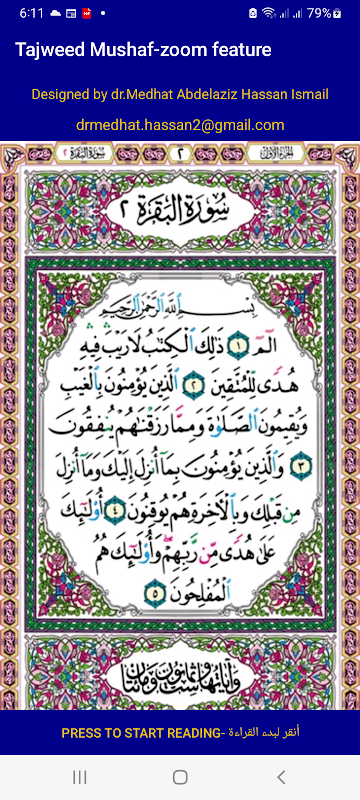 6:11 79%
Tajweed Mushaf-zoom feature
Designed by dr.Medhat Abdelaziz Hassan Ismail
drmedhat.hassan2@gmail.com
سُورَةُ البَقَرَةِ ٢ ٢ الجزء الأول
سُورَةُ البَقَرَةِ ٢
بِسْمِ ٱللَّهِ ٱلرَّحْمَٰنِ ٱلرَّحِيمِ
الٓمٓ ١ ذَٰلِكَ ٱلْكِتَٰبُ لَا رَيْبَ فِيهِ
هُدًى لِّلْمُتَّقِينَ ٢ ٱلَّذِينَ يُؤْمِنُونَ بِٱلْغَيْبِ
وَيُقِيمُونَ ٱلصَّلَوٰةَ وَمِمَّا رَزَقْنَٰهُمْ يُنفِقُونَ
٣ وَٱلَّذِينَ يُؤْمِنُونَ بِمَآ أُنزِلَ إِلَيْكَ وَمَآ أُنزِلَ
مِن قَبْلِكَ وَبِٱلْأَخِرَةِ هُمْ يُوقِنُونَ ٤ أُو۟لَٰٓئِكَ
عَلَىٰ هُدًى مِّن رَّبِّهِمْ وَأُو۟لَٰٓئِكَ هُمُ
ٱلْمُفْلِحُونَ ٥
وآياتها ست وثمانون ومائتان
PRESS TO START READING- أنقر لبدء القراءة